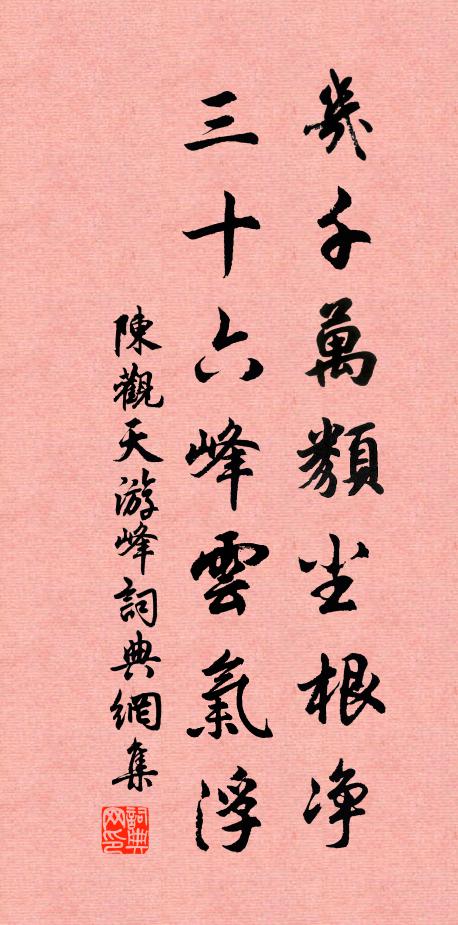 幾千萬類尘根净
三十六峰雲氣浮
陳觀天游峰詞典網集
詞典网印